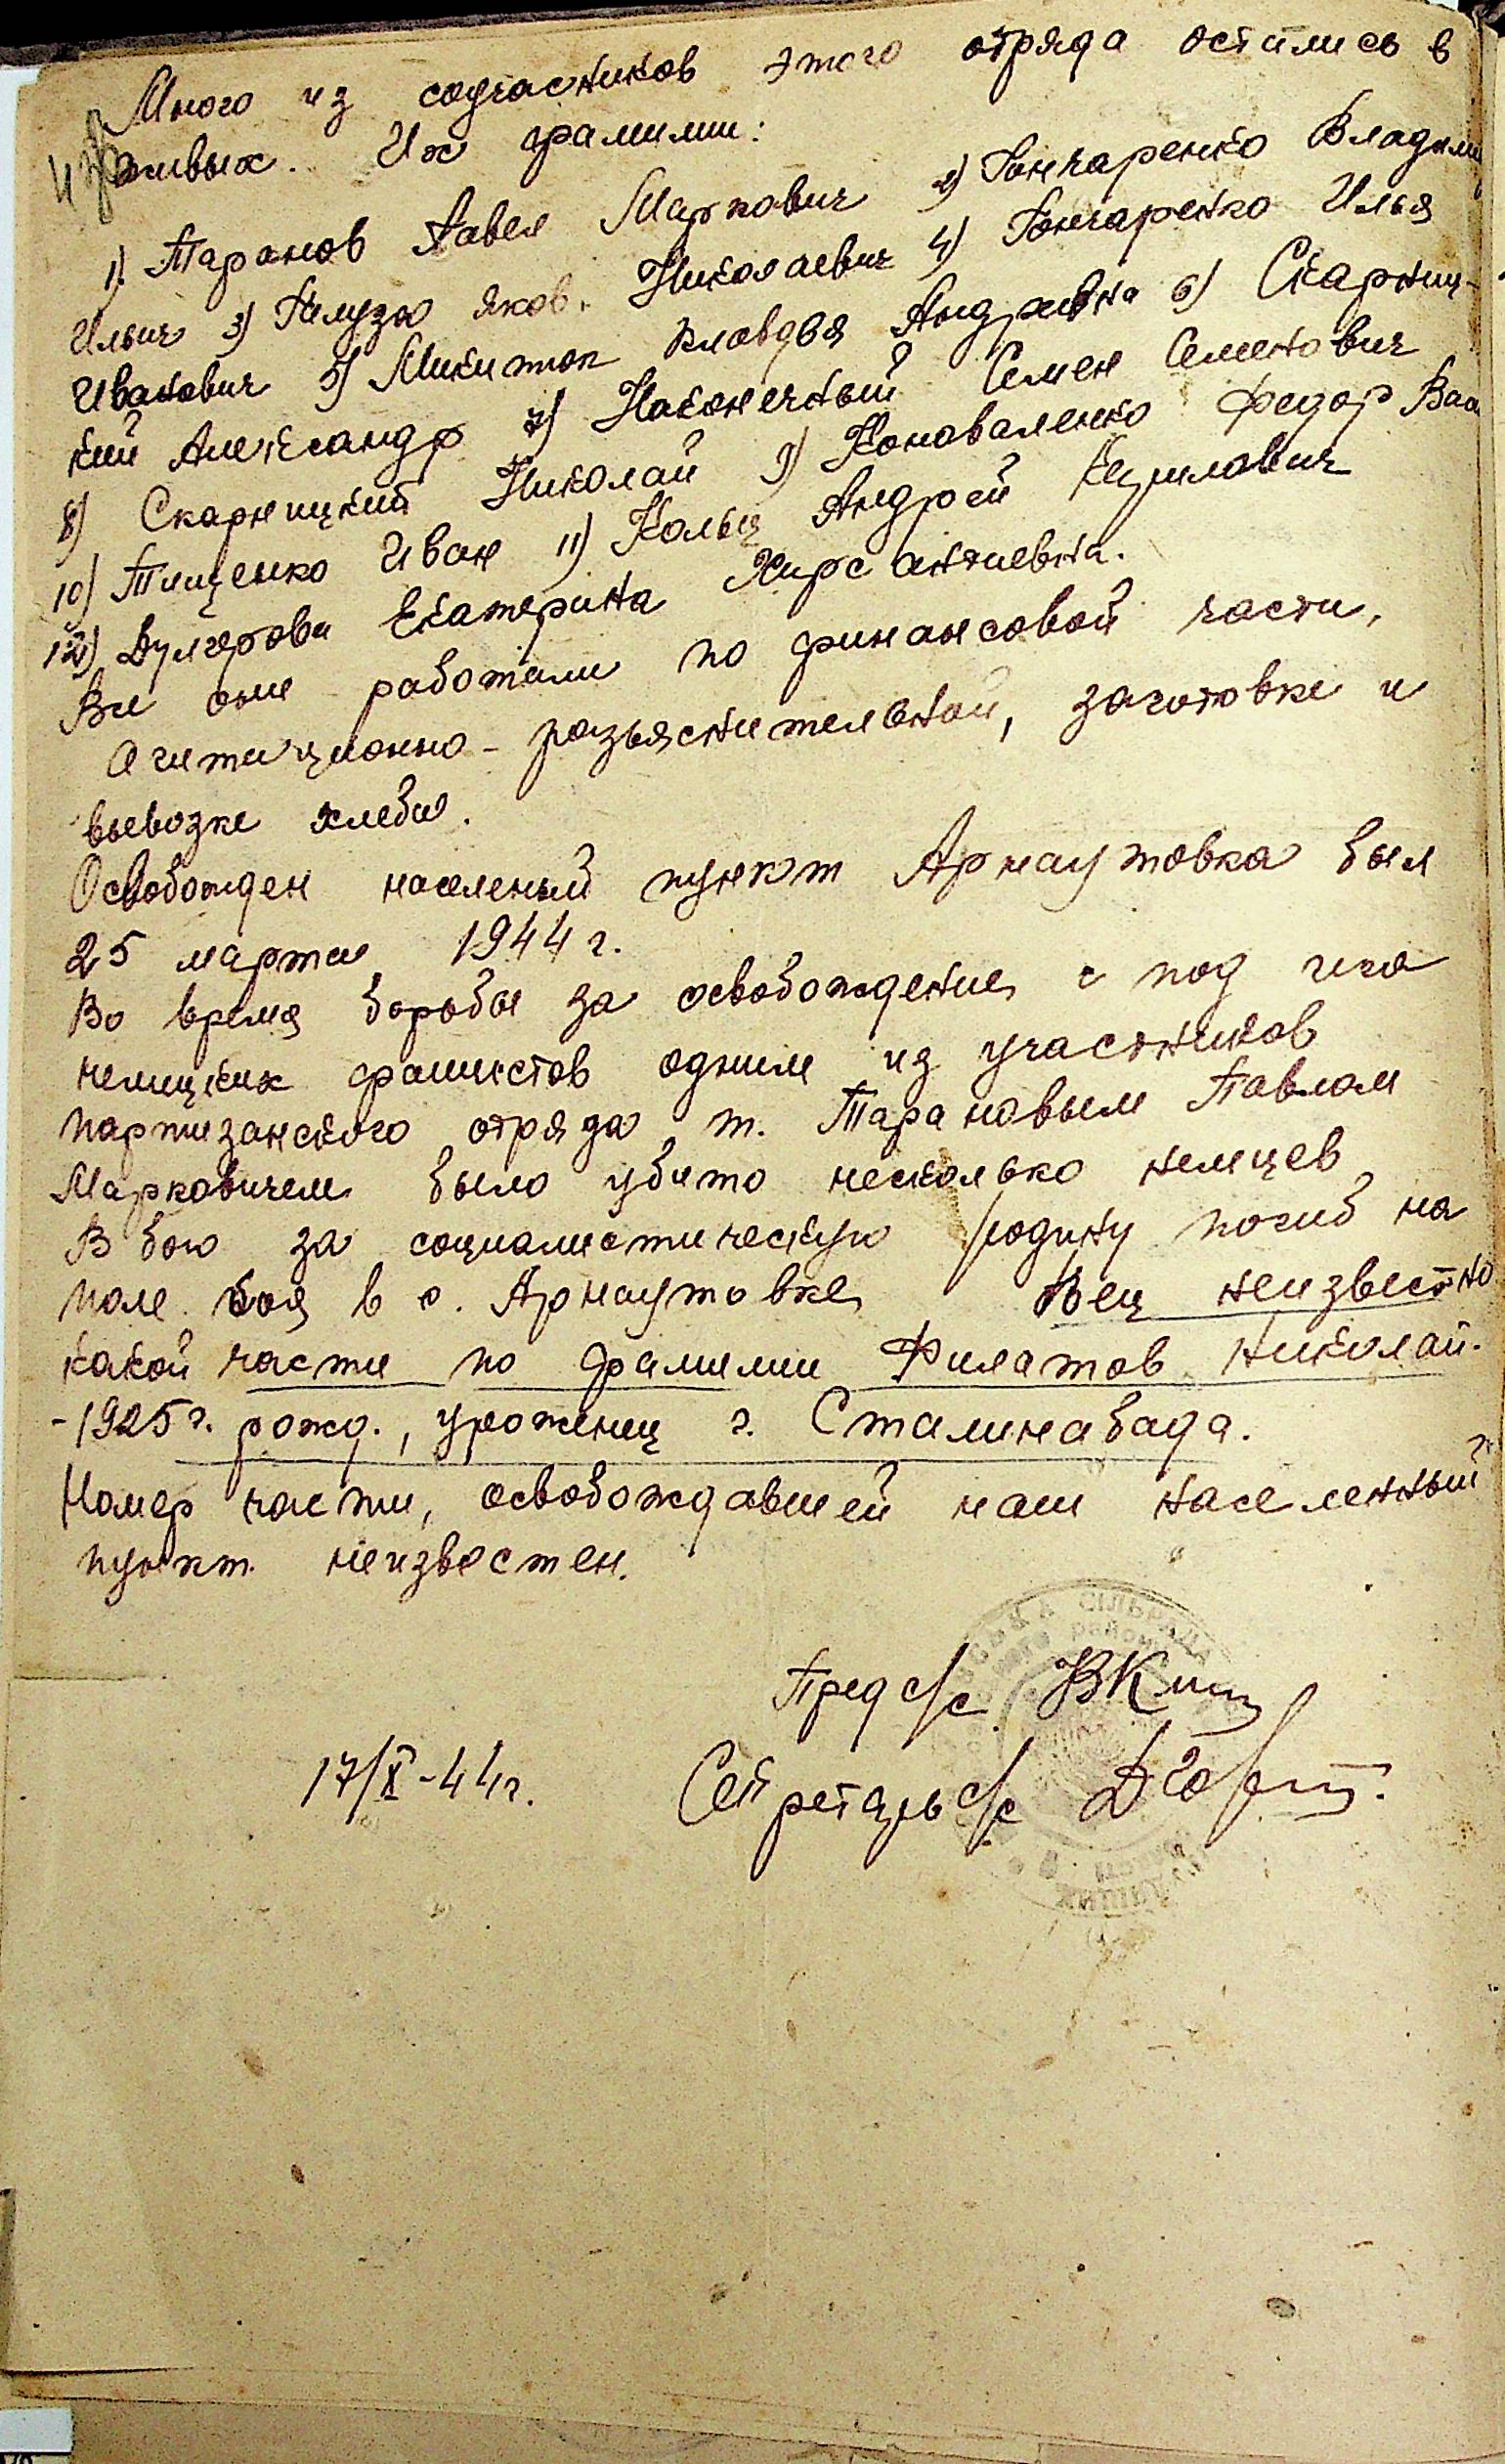 Много из соучастников этого отряда остались в
живых. Их фамилии:
1). Таранов Павел Маркович 2) Гончаренко Владими
Ильич 3) Галуза Яков Николаевич 4) Гончаренко Илья
Иванович 5) Микитюк Клавдия Андреевна 6) Скарниц-
кий Александр 7) Наконечный Семен Семенович
8) Скарницкий Николай 9) Коноваленко Федор Вас
10) Тищенко Иван 11) Кольц Андрей Кирилович
12) Дулгерова Екатерина Хирсантиевна.
Все они работали по финансовой части,
агитационно-разъяснительной, заготовке и
вывозке хлеба.
Освобожден населеный пункт Арнаутовка был
25 марта 1944 г.
Во время борьбы за освобождение с под ига
немецких фашистов одним из участников
партизанского отряда т. Тарановым Павлом
Марковичем было убито несколько немцев
В бою за социалистическую родину погиб на
поле боя в с. Арнаутовке неизвестно
какой части по фамилии Филатов Николай.
-1925 г. рожд., уроженец г. Сталинабада.
Номер части, освобождавшей наш населенный
пункт неизвестен.
СІЛЬРАДА
Пред с/с
17/X-44г.
Секретарь с/с